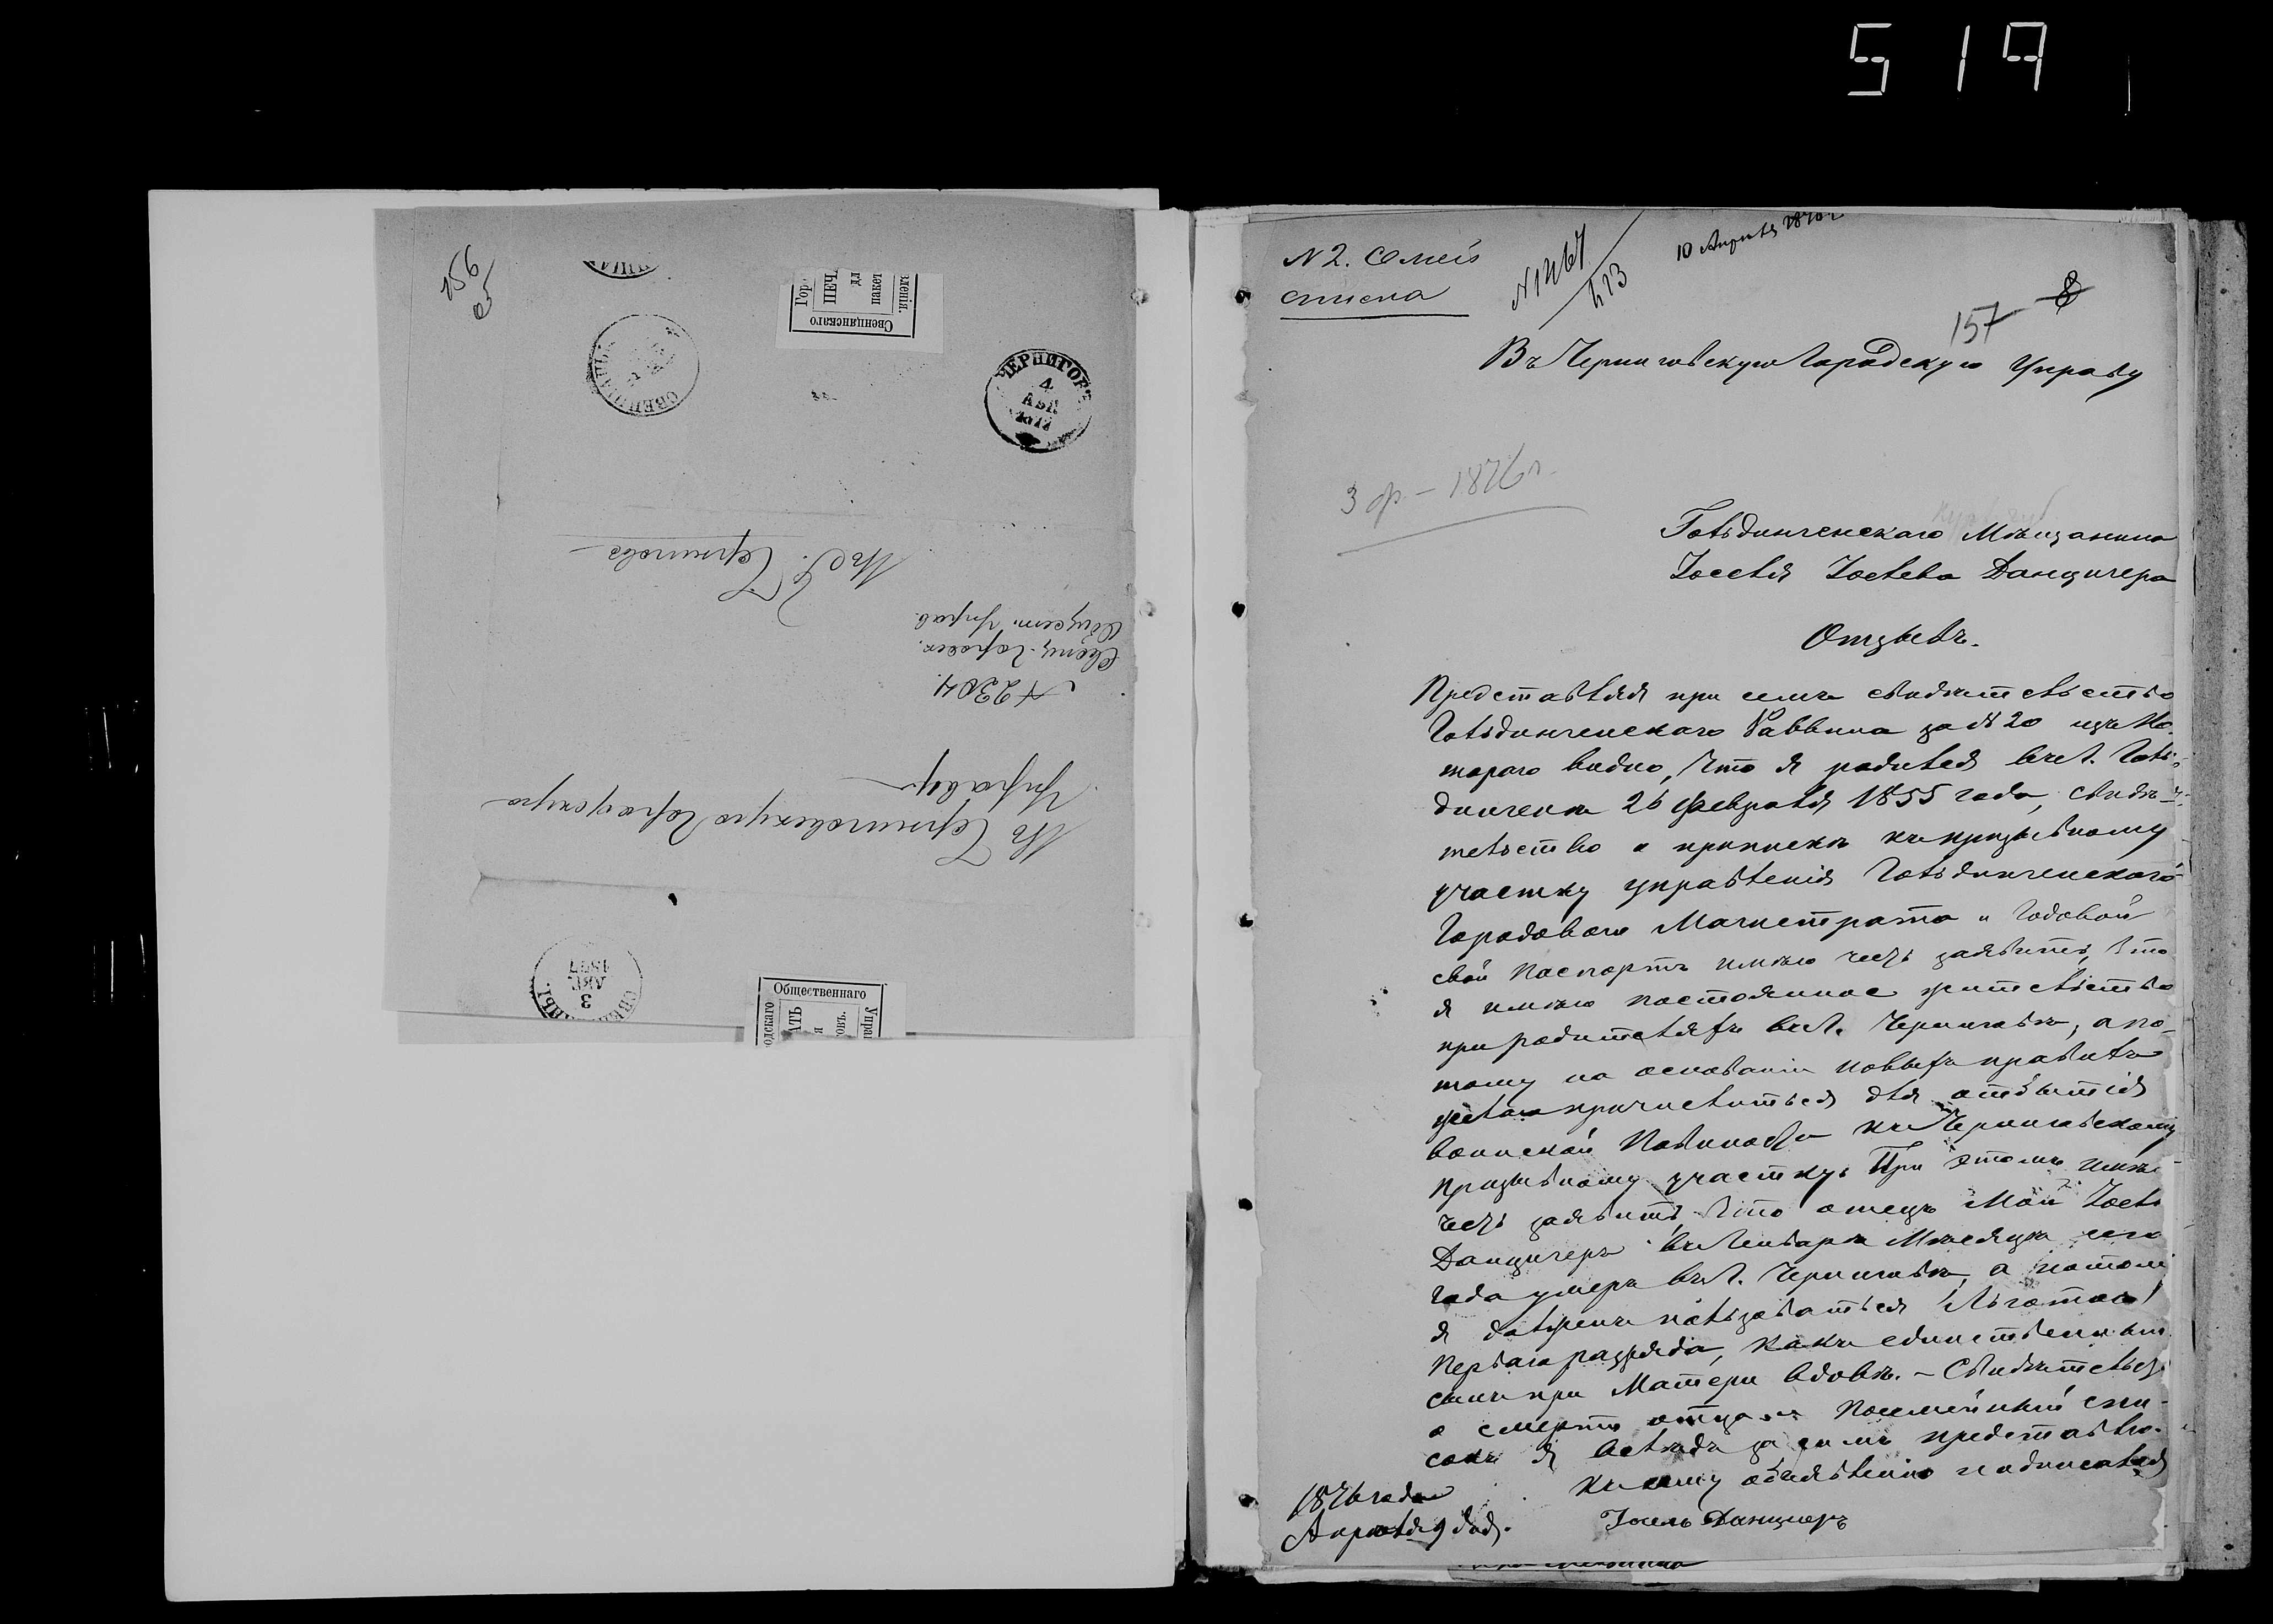 519
156
об
Свенцянскаго
ЧЕРНИГОВЪ
4
АПР
1877
Въ Черниговскую Городскую
Управу
№ 2304
Свенц. Городск.
Общест. Управ.
Въ г. Черниговъ
3
АПР.
1877
Общественнаго
N 2. Семей
списка
10 Апрѣля 1876 г
157
8
Въ Черниговскую Городскую Управу
3 р – 1876 г.
Гольдингенскаго Мѣщанина
Іоселя Іоселева Данцигера
Отзывъ.
Представляя при семъ свидѣтельство
Гольдингенскаго Раввина за № 20 изъ ко-
тораго видно, что я родился въ г. Голь-
дингенѣ 26 февраля 1855 года, свидѣ-
тельство о припискѣ къ призывному
участку управленія Гольдингенскаго
Городоваго Магистрата и Годовой
свой паспортъ имѣю честь заявить, что
я имѣю постоянное жительство
при родителяхъ въ г. Черниговѣ, а по-
тому на основаніи новыхъ правилъ
желаю причислиться для отбытія
воинской повинности къ Черниговскому
призывному участку. При этомъ имѣю
честь заявить, что отецъ мой Іосель
Данцигеръ въ Генварѣ Мѣсяцѣ сего
года умеръ въ г. Черниговѣ, а потому
я долженъ пользоваться льготою
перваго разряда, какъ единственный
сынъ при Матери вдовѣ. – Свидѣтельство
о смерти отца и посемейный спи-
сокъ я вслѣдъ за симъ представлю.
къ сему объявленію подписался
Іосель Данцигеръ
1876 года
Апрѣля 9 дня.